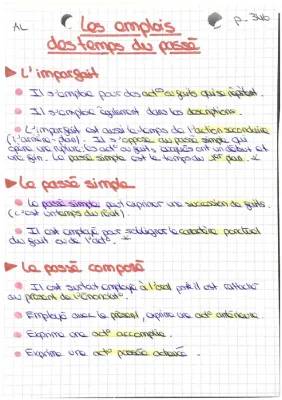 AL
p. 346
Les emplois
des temps du passé
L'imparfait
Il s'emploie pour des act° ou faits qui se répètent.
Il s'emploie également dans les descriptions.
L'imparfait est aussi le temps de l'action secondaire
(l'arrière-plan). Il s'oppose au passé simple qui
les act° ou faits, ont un début et
une fin. Le passé simple est le temps du 1er plan.
Le passé simple
Le passé simple peut exprimer une succession de faits.
(c'est un temps du récit).
Il est employé pour souligner le caractère ponctuel
du fait ou de l'act°.
Le passé composé
Il est surtout employé à l'oral est rattaché
au présent de l'énonciat°.
Employé avec le présent, exprime une act° antérieure.
Exprime une act° accomplie.
Exprime une act° passée achevée.